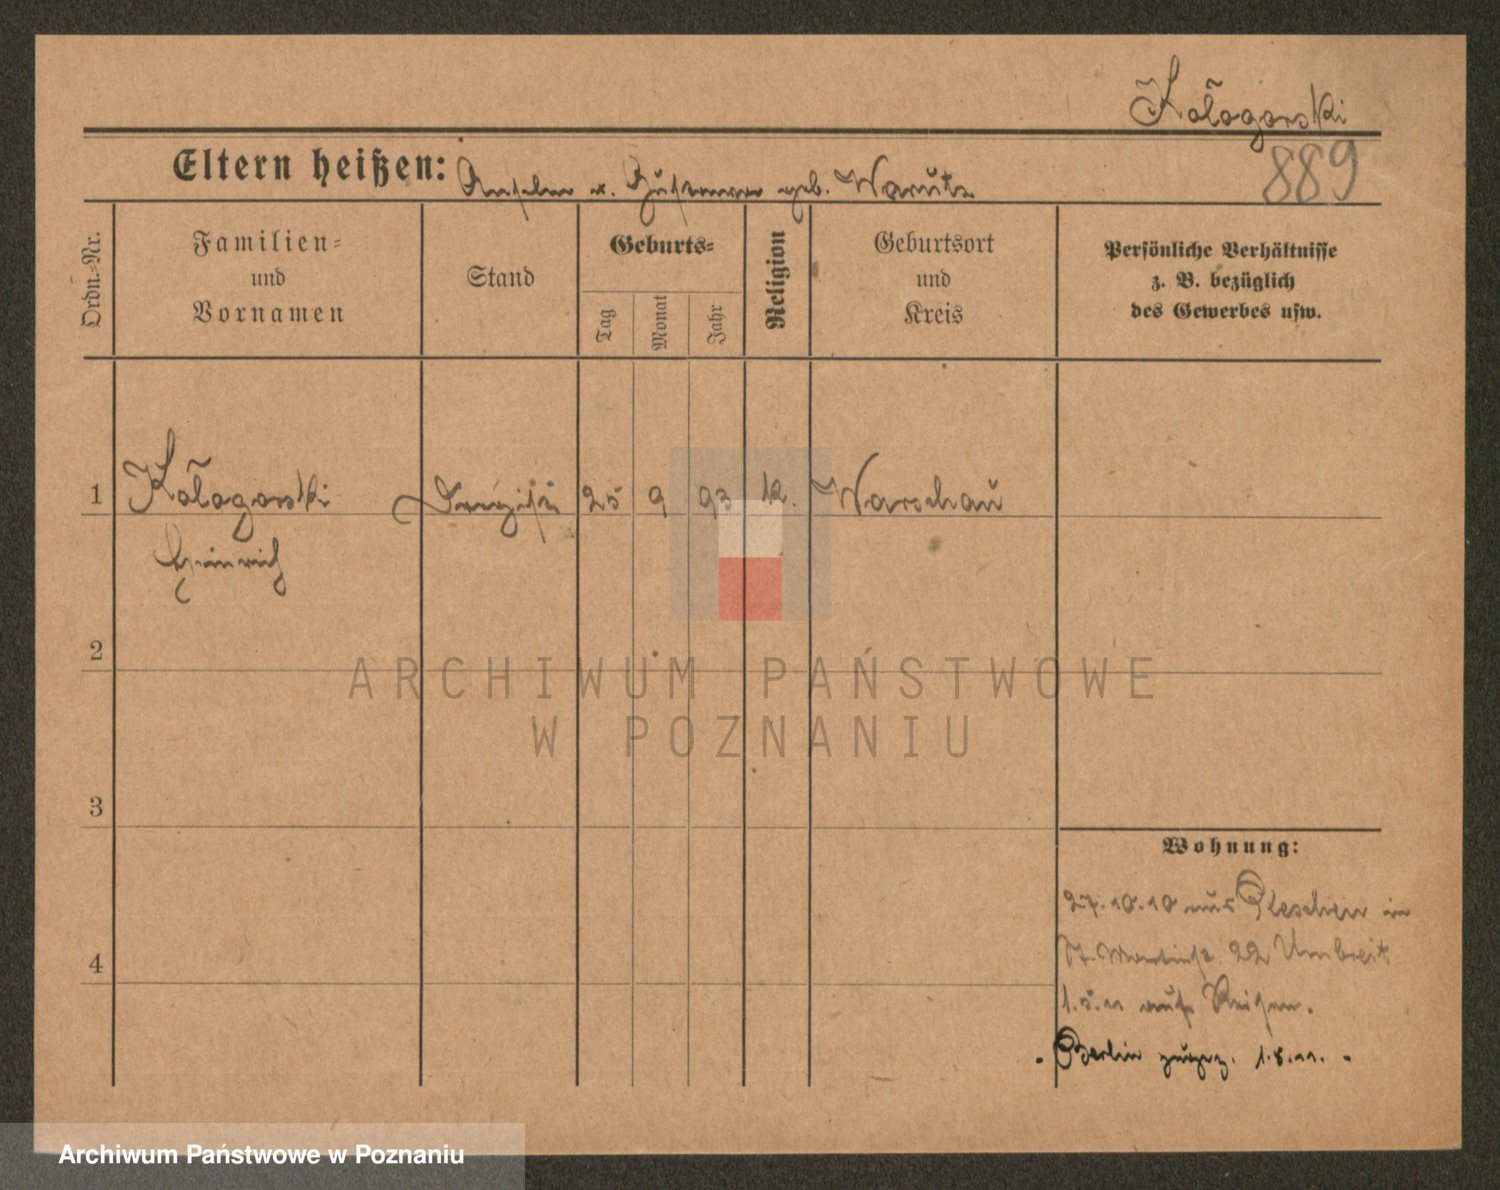 Kołogorski
889
Eltern heißen: Anselm u. geb. Warutz
Ordn.-Nr.
Familien-
und
Vornamen
Stand
Geburts-
Tag
Monat
Jahr
Religion
Geburtsort
und
Kreis
Persönliche Verhältnisse
z. B. bezüglich
des Gewerbes usw.
1 Kołogorski 25 9 93 k. Warschau
Heinrich
2
3
4
ARCHIWUM PAŃSTWOWE
W POZNANIU
Wohnung:
27.10.10 aus Pleschen in
St. Martinstr. 22 Umbreit
1.5.11 auf Reisen.
Berlin zugez. 1.8.11.
Archiwum Państwowe w Poznaniu